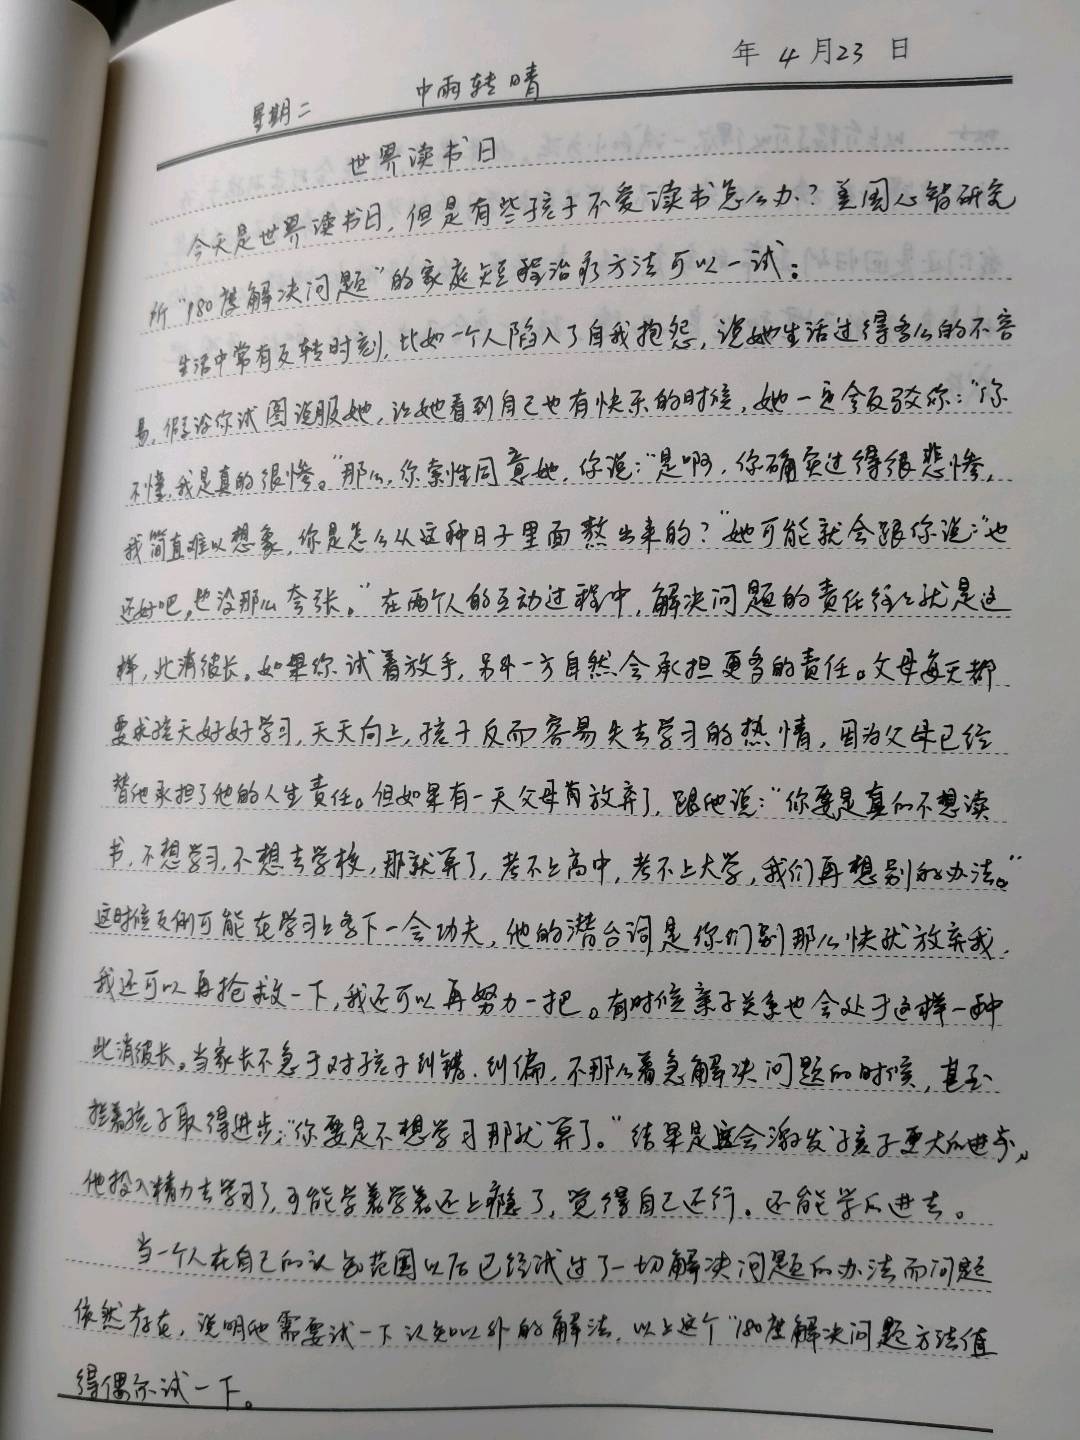 年 4 月 23 日
星期二 中雨转晴
世界读书日
今天是世界读书日，但是有些孩子不爱读书怎么办？美国心智研究
所“180度解决问题”的家庭短程治疗方法可以一试：
生活中常有反转时刻，比如一个人陷入了自我抱怨，说她生活过得多么的不容
易，假设你试图说服她，让她看到自己也有快乐的时候，她一定会反驳你：“你
不懂，我是真的很惨。”那么，你索性同意她，你说：“是啊，你确实过得很悲惨，
我简直难以想象，你是怎么从这种日子里面熬出来的？”她可能就会跟你说：“也
还好吧，也没那么夸张。”在两个人的互动过程中，解决问题的责任往往就是这
样，此消彼长。如果你试着放手，另外一方自然会承担更多的责任。父母每天都
要求孩天好好学习，天天向上，孩子反而容易失去学习的热情，因为父母已经
替他承担了他的人生责任。但如果有一天父母肯放弃了，跟他说：“你要是真的不想读
书，不想学习，不想去学校，那就算了，考不上高中，考不上大学，我们再想别的办法。”
这时候反倒可能在学习上多下一会功夫，他的潜台词是你们别那么快就放弃我，
我还可以再抢救一下，我还可以再努力一把。有时候亲子关系也会处于这样一种
此消彼长。当家长不急于对孩子纠错、纠偏，不那么着急解决问题的时候，甚至
拦着孩子取得进步：“你要是不想学习那就算了。”结果是这会激发孩子更大的进步，
他投入精力去学习了，可能学着学着还上瘾了，觉得自己还行。还能学后进去。
当一个人在自己的认知范围以后已经试过了一切解决问题的办法而问题
依然存在，说明他需要试一下认知以外的解法，以上这个“180度解决问题方法值
得偶尔试一下。